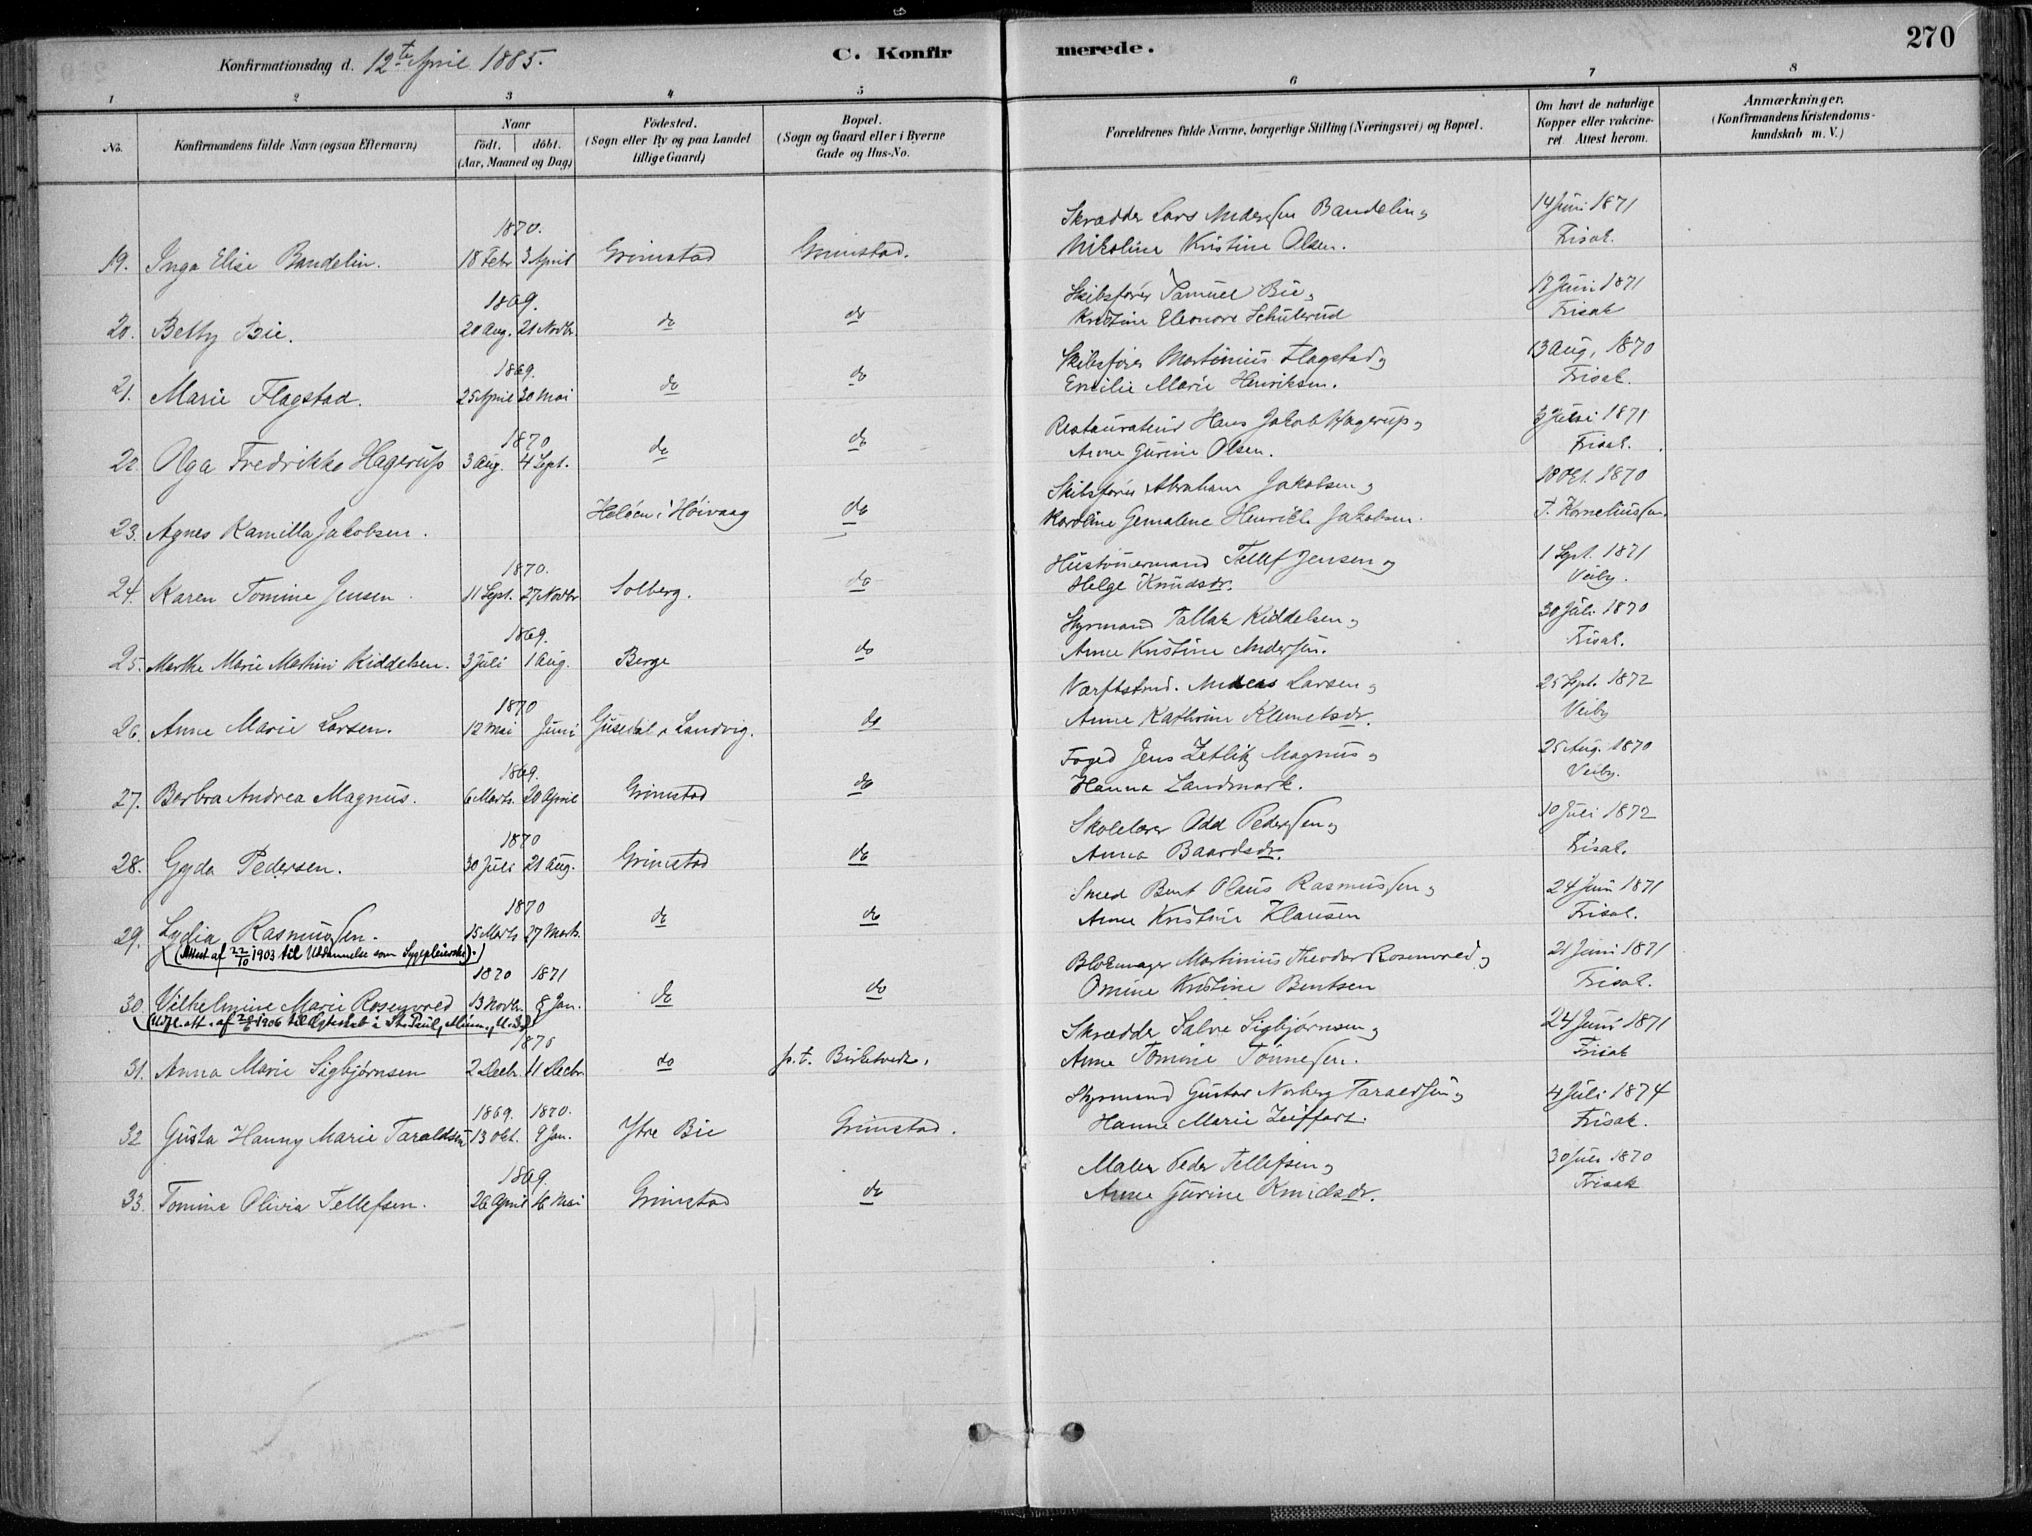 270
Konfirmationsdag d. 12te April 1885.
C. Konfirmerede.
1 2 3 4 5 6 7 8
No.
Konfirmandens fulde Navn (ogsaa Efternavn)
Naar
födt. döbt.
(Aar, Maaned og Dag)
Födested.
(Sogn eller By og paa Landet
tillige Gaard)
Bopæl.
(Sogn og Gaard eller i Byerne
Gade og Hus-No.
Forældrenes fulde Navne, borgerlige Stilling (Næringsvei) og Bopæl.
Om havt de naturlige
Kopper eller vakcine-
ret. Attest herom.
Anmærkninger.
(Konfirmandens Kristendoms-
kundskab m. V.)
1870.
19. Inga Elise Bandelin. 18 Febr 3 April Grimstad Grimstad.
Skrædder Lars Anderssen Bandelin og
Nikoline Kristine Olsen.
14 Juni 1871
Frisak.
1869.
20. Betty Bie. 20 Aug. 21 Novbr do do
Skibsfører Samuel Bie og
Kristine Eleonore Schulerud
17 Juni 1871
Frisak
1869.
21. Marie Flagstad. 25 April 30 Mai do do
Skibsfører Martinius Flagstad og
Emilie Marie Henriksen.
13 Aug. 1870
Frisak.
1870
22. Olga Fredrikke Hagerup 3 Aug. 4 Sept. do do
Restauratør Hans Jakob Hagerup og
Anne Gurine Olsen.
3 Juli 1871
Frisak.
23. Agnes Kamilla Jakobsen. Heløen i Høivaag do
Skibsfører Abraham Jakobsen og
Karoline Gemalene Henrikke Jakobsen.
18 Okt. 1870
T. Korneliussen.
1870.
24. Karen Tomine Jensen. 11 Sept. 27 Novbr Solberg. do
Hustømermand Tellef Jensen og
Helge Knudsdr.
1 Sept. 1871
Veiby.
1869.
25. Marthe Marie Martini Kiddelsen. 3 Juli 1 Aug. Berge do
Styrmand Tallak Kiddelsen og
Anne Kristine Andersen.
30 Juli 1870
Frisak.
1870
26. Anne Marie Larsen. 12 Mai Juni Gusedal i Landvig. do
Værftstmd. Andreas Larsen og
Anne Kathrine Klemetsdr.
25 Sept. 1872
Veiby
1869.
27. Barbra Andrea Magnus. 6 Marts. 20 April Grimstad do
Foged Jens Zetlitz Magnus og
Hanna Landmark.
25 Aug. 1870
Veiby.
1870
28. Gyda Pedersen. 30 Juli 21 Aug. Grimstad do
Skolelærer Odd Pederssen og
Anna Baardsdr.
10 Juli 1872
Frisak.
1870
29. Lydia Rasmussen. 15 Marts 27 Marts. do do
(Attest af 22/10 1903 til Uddannelse som Sygepleierske).
Smed Bent Olaus Rasmussen og
Anne Kristine Klausen
24 Juni 1871
Frisak.
1870 1871
30. Vilhelmine Marie Rosenvold 13 Novbr. 8 Jan. do do
Blokmager Martinius Theodor Rosenvold og
Omine Kristine Bentsen
21 Juni 1871
Frisak.
1870
31. Anna Marie Sigbjørnsen 2 Decbr. 11 Decbr do p.t. Birketvedt.
Skrædder Salve Sigbjørnsen og
Anne Tomine Tønnessen.
24 Juni 1871
Frisak
1869. 1870.
32 Gusta Hanny Marie Taraldsen 13 Okt. 9 Jan. Ytre Bie Grimstad.
Styrmand Gustav Norberg Taraldsen og
Hanne Marie Zeiffart.
4 Juli 1874
Frisak.
1869.
33. Tomine Olivia Tellefsen. 26 April 16 Mai Grimstad do
Maler Peder Tellefsen og
Anne Gurine Knudsdr.
30 Juli 1870
Frisak